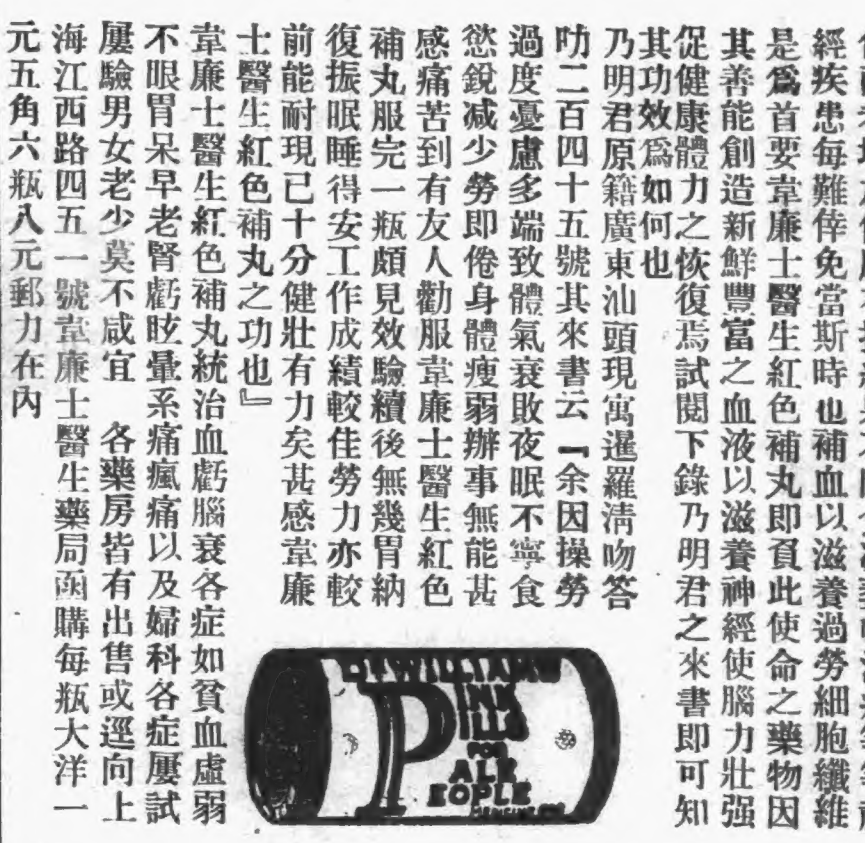 經疾患每難倖免當斯時也補血以滋養過勞細胞纖維
是爲首要韋廉士醫生紅色補丸即負此使命之藥物因
其善能創造新鮮豐富之血液以滋養神經使腦力壯强
促健康體力之恢復焉試閱下錄乃明君之來書即可知
其功效爲如何也
乃明君原籍廣東汕頭現寓暹羅淸吻答
叻二百四十五號其來書云『余因操勞
過度憂慮多端致體氣衰敗夜眠不寧食
慾銳減少勞即倦身體瘦弱辦事無能甚
感痛苦到有友人勸服韋廉士醫生紅色
補丸服完一瓶頗見效驗續後無幾胃納
復振眠睡得安工作成績較佳勞力亦較
前能耐現已十分健壯有力矣甚感韋廉
士醫生紅色補丸之功也』
韋廉士醫生紅色補丸統治血虧腦衰各症如貧血虛弱
不眠胃呆早老腎虧眩暈系痛瘋痛以及婦科各症屢試
屢驗男女老少莫不咸宜 各藥房皆有出售或逕向上
海江西路四五一號韋廉士醫生藥局函購每瓶大洋一
元五角六瓶八元郵力在內
DR WILLIAMS
PINK
PILLS
FOR
PALE
PEOPLE